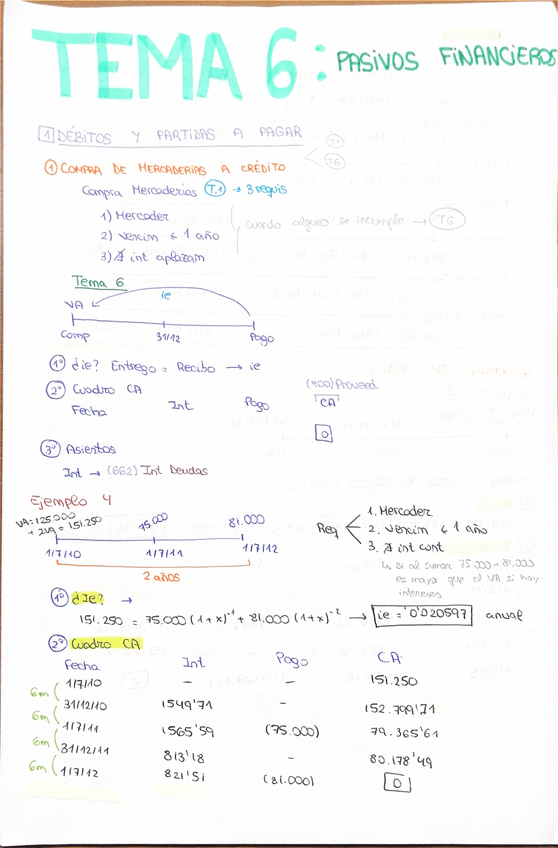 TEMA 6: PASIVOS FINANCIEROS
1 DÉBITOS Y PARTIDAS A PAGAR
T1
T6
① COMPRA DE MERCADERIAS A CRÉDITO
Compra Mercaderias T.1 → 3 requis
1) Mercader
2) Vencim < 1 año
3) ∄ int aplazam
cuando alguno se incumple → T6
Tema 6
VA ie
Comp 31/12 Pago
1º ¿ie? Entrego = Recibo → ie
2º Cuadro CA (400) Proveed.
Fecha Int Pago CA
0
3º Asientos
Int → (662) Int Deudas
Ejemplo 4
VA = 125.000
+ IVA = 151.250
75.000 81.000
1/7/10 1/7/11 1/7/12
2 años
Req
1. Mercader
2. Vencim < 1 año
3. ∄ int cont
↳ Si al sumar 75.000 + 81.000
es mayor que el VA si hay
intereses
1º ¿Ie? →
151.250 = 75.000 (1+x)⁻¹ + 81.000 (1+x)⁻² → ie = 0'020597 anual
2º Cuadro CA
Fecha Int Pago CA
1/7/10 - - 151.250
6m
31/12/10 1549'71 - 152.799'71
6m
1/7/11 1565'59 (75.000) 79.365'61
6m
31/12/11 813'18 - 80.178'49
6m
1/7/12 821'51 (81.000) 0